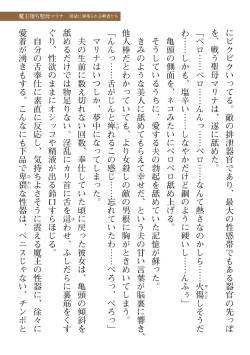 魔王堕ち聖母マリナ
にピクピクいってる。敵の排泄器官であり、最大の性感帯でもある器官の先っぽ
を、戦う聖母マリナは、遂に舐めた。
「ペロ……ペロ……んっ……ペロ……なんて熱さなのかしら……火傷しそうだ
わ……しかも、塩辛い……しなやかだけど鋼のように硬いし……んふぅ」
亀頭の側面を、ネコみたいにペロペロ舐め上げる。
そうしているうちに、愛する夫の勃起を舐めていた記憶が蘇った。
きみのような美人に舐めてもらえて幸せだ、という夫の甘い言葉が脳裏に響き、
他人棒だとわかっていても、より女殺しの敵の男根に胸がときめいてしまう。
「んんっ……舌がじんと痺れるこの感じ……忘れてたわ……ぺろっ、ぺろっ」
マリナはいつしか、夢中になってしまった。
夫の生前に数え切れない回数、奉仕していた頃に戻った彼女は、亀頭の傾斜を
舐めるだけでは物足りない。淫乱にネリネリ舌を這わせ、ふしだらに裏筋をくす
ぐり、性液のままにオシッコや精液が出る鈴口すらもほじる。
自分の舌奉仕に素直に反応し、気持ちよさそうに震える魔王の性器に、徐々に
愛着が湧きもする。こんなにも下品で卑猥な性器は、ペニスじゃない、チンポと